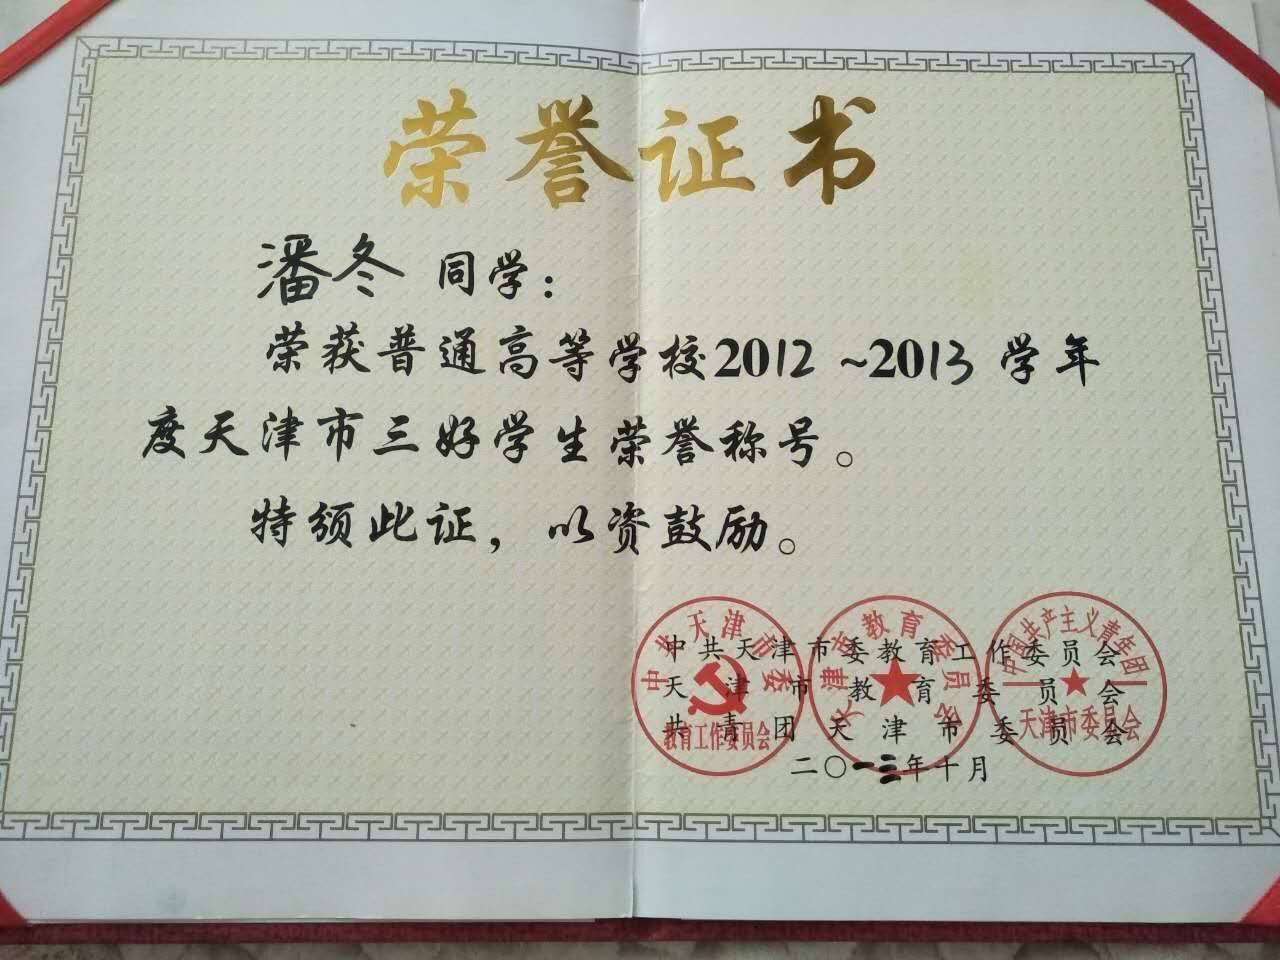 荣誉证书
潘冬 同学：
荣获普通高等学校2012～2013学年
度天津市三好学生荣誉称号。
特颁此证，以资鼓励。
中共天津市委教育工作委员会
天津市教育委员会
共青团天津市委员会
二〇一三年十月
中共天津市委
教育工作委员会
天津市教育委员会
中国共产主义青年团
天津市委员会